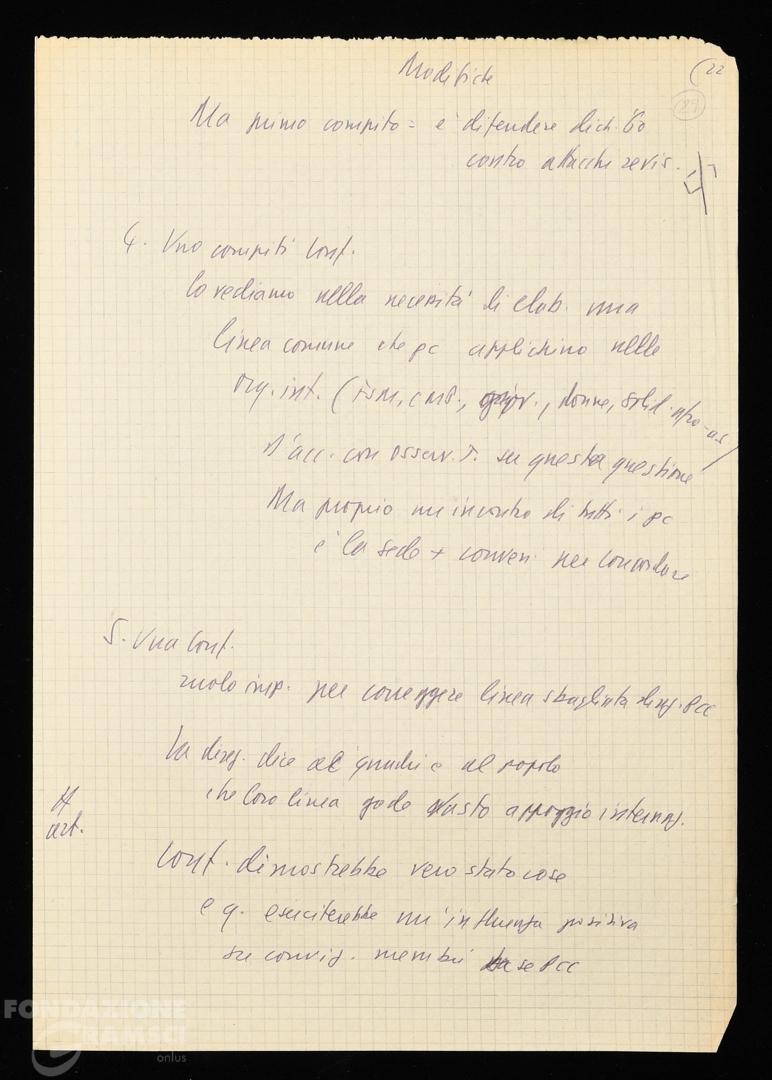 Modifiche
(22
89
Ma primo compito = è difendere dich. 60
contro attacchi revis.
4. Uno compiti Conf.
Lo vediamo nella necessità di elab. una
linea comune che pc applichino nelle
org. int. (FSM, CMP, giov., donne, solid. afro-as)
D'acc. con osserv. T. su questa questione
Ma proprio un incontro di tutti i pc
è la sede + conven. per concordare
5. Una Conf.
ruolo imp. per correggere linea sbagliata dirig. PCC
La direz. dice ai quadri e al popolo
che loro linea gode vasto appoggio internaz.
art.
Conf. dimostrebbe vero stato cose
e q. eserciterebbe un'influenza positiva
su conviz. membri base PCC
FONDAZIONE
GRAMSCI
onlus